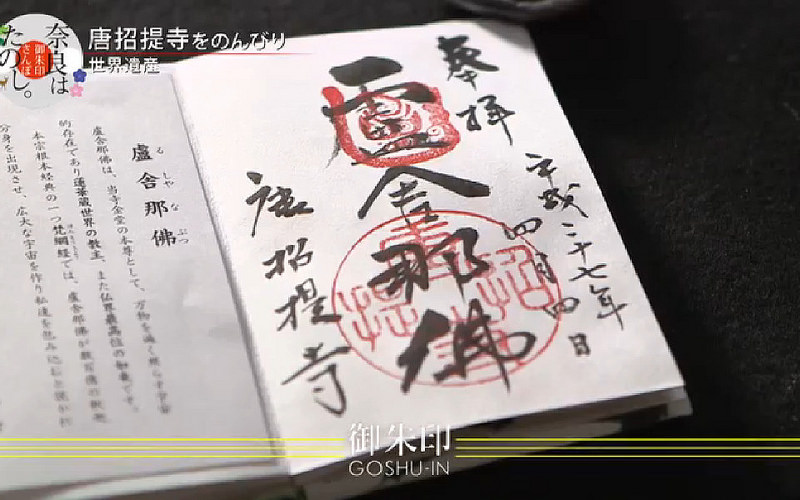 奈良は
たのし。
御朱印
さんぽ
唐招提寺をのんびり
世界遺産
奉拝
平成二十七年
四月四日
盧舎那佛
唐招提寺
盧舎那佛
る しゃ な ぶつ
盧舎那佛は、当寺金堂の本尊として、万物を遍く照らす宇宙
的存在であり蓮華蔵世界の教主、また仏界最高位の如来です。
本宗根本経典の一つ梵網経では、盧舎那佛が
分身を出現させ、広大な宇宙を作り私達を包み込むと説かれ
御朱印
GOSHU-IN